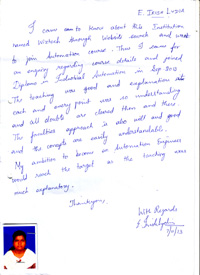 E. Indo Lydia
I came to know about this Institution
named Wiztech through Website search and want
to join Automation course. Thus I came for
an enquiry regarding course details and joined
Diploma in Industrial Automation in Sep 2012
The teaching was good and explanation also
each and every point was so understanding
and all doubts are cleared then and there.
The faculties approach is also well and good
and the concepts are easily understandable.
My ambition to become an Automation Engineer
would reach the target as the teaching was
much explanatory.
Thankyou,
With Regards